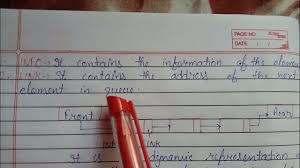 PAGE NO
DATE
1. INFO → It contains the information of the eleme
2. LINK → It contains the address of the next
element in queue.
Front
hear
NK
It is dynamic representation